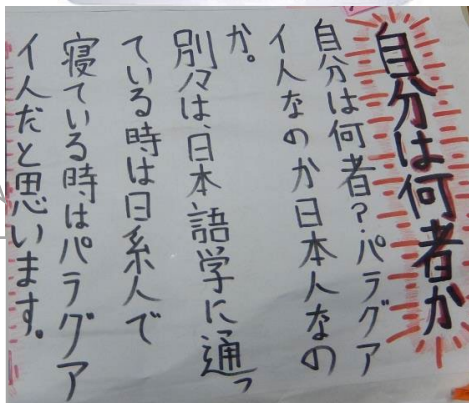 自分は何者か
自分は何者?パラグア
イ人なのか日本人なの
か。
別々は、日本語学に通っ
ている時は日系人で
寝ている時はパラグア
イ人だと思います。